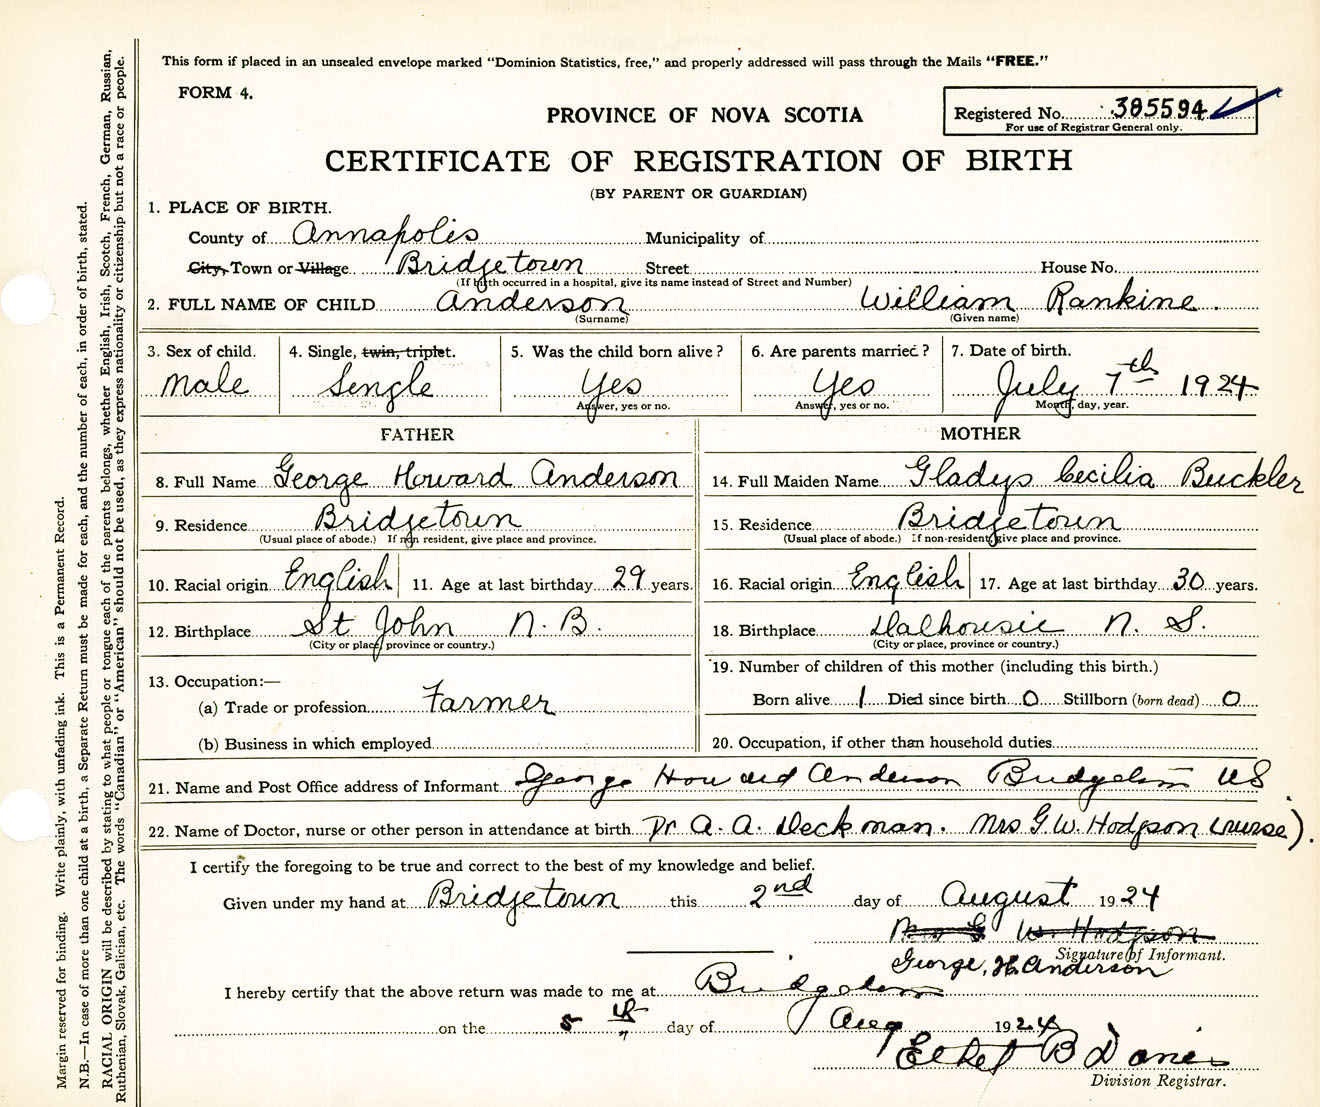 This form if placed in an unsealed envelope marked "Dominion Statistics, free," and properly addressed will pass through the Mails "FREE."
FORM 4.
PROVINCE OF NOVA SCOTIA
Registered No. 385594
For use of Registrar General only.
CERTIFICATE OF REGISTRATION OF BIRTH
(BY PARENT OR GUARDIAN)
1. PLACE OF BIRTH.
County of Annapolis Municipality of
City, Town or Village Bridgetown Street House No.
(If birth occurred in a hospital, give its name instead of Street and Number)
2. FULL NAME OF CHILD Anderson William Rankine.
(Surname) (Given name)
3. Sex of child. 4. Single, twin, triplet. 5. Was the child born alive? 6. Are parents married? 7. Date of birth.
Male Single Yes Yes July 7th 1924
Answer, yes or no. Answer, yes or no. Month, day, year.
FATHER MOTHER
8. Full Name George Howard Anderson 14. Full Maiden Name Gladys Cecilia Buckler
9. Residence Bridgetown 15. Residence Bridgetown
(Usual place of abode.) If non resident, give place and province. (Usual place of abode.) If non-resident, give place and province.
10. Racial origin English 11. Age at last birthday 29 years. 16. Racial origin English 17. Age at last birthday 30 years.
12. Birthplace St John N.B. 18. Birthplace Dalhousie N. S.
(City or place, province or country.) (City or place, province or country.)
19. Number of children of this mother (including this birth.)
13. Occupation:—
(a) Trade or profession Farmer Born alive 1 Died since birth 0 Stillborn (born dead) 0
(b) Business in which employed 20. Occupation, if other than household duties
21. Name and Post Office address of Informant George Howard Anderson Bridgetown NS.
22. Name of Doctor, nurse or other person in attendance at birth Dr A. A. Deckman. Mrs G.W. Hodgson (nurse).
I certify the foregoing to be true and correct to the best of my knowledge and belief.
Given under my hand at Bridgetown this 2nd day of August 1924
Mrs G W. Hodgson
Signature of Informant.
George, H. Anderson
I hereby certify that the above return was made to me at Bridgetown
on the 5th day of Aug 1924
Ethel B
Division Registrar.
Margin reserved for binding. Write plainly, with unfading ink. This is a Permanent Record.
N.B.—In case of more than one child at a birth, a Separate Return must be made for each, and the number of each, in order of birth, stated.
RACIAL ORIGIN will be described by stating to what people or tongue each of the parents belongs, whether English, Irish, Scotch, French, German, Russian,
Ruthenian, Slovak, Galician, etc. The words "Canadian" or "American" should not be used, as they express nationality or citizenship but not a race or people.